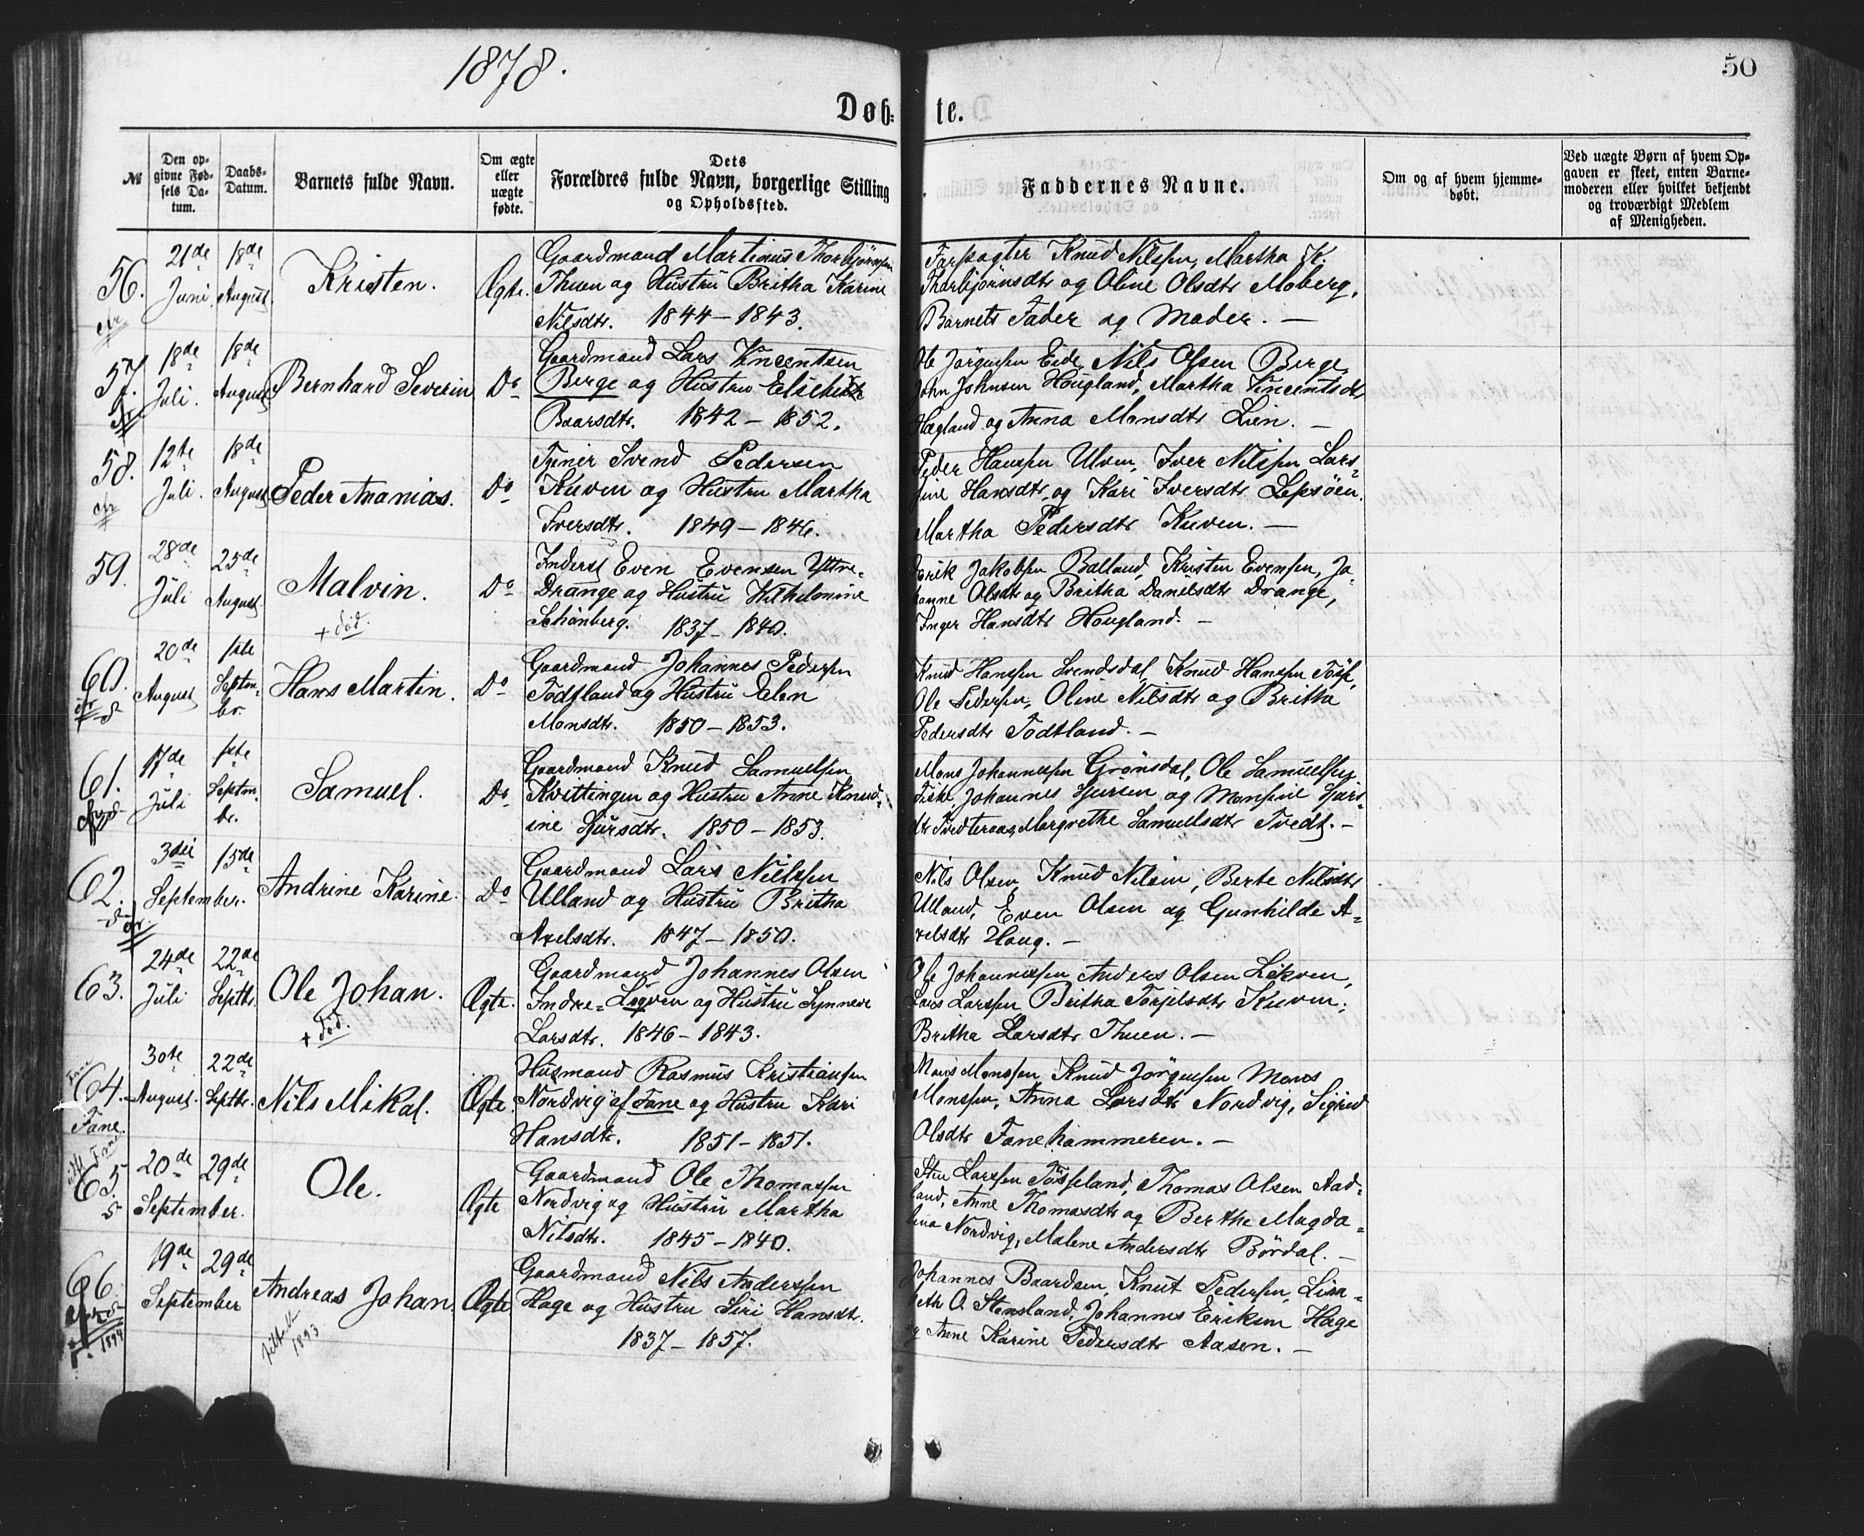 1878.
50
Døb-te.
№
Den opgivne Fødsels Datum.
Daabs-Datum.
Barnets fulde Navn.
Om ægte eller uægte fødte.
Dets Forældres fulde Navn, borgerlige Stilling og Opholdssted.
Faddernes Navne.
Om og af hvem hjemmedøbt.
Ved uægte Børn af hvem Opgaven er skeet, enten Barnemoderen eller hvilket bekjendt og troværdigt Medlem af Menigheden.
56. 21de Juni. 18de August Kristen. Ægte.
Gaardmand Martinus Thorbjørnsen
Thuen og Hustru Britha Karine
Nilsdtr. 1844 – 1843.
Forpagter Knud Nilssen, Martha K.
Thorbjørnsdtr og Oline Olsdtr Moberg,
Barnets Fader og Moder. —
57. 18de Juli. 18de August Bernhard Severin Do
Gaardmand Lars Vincentsen
Berge og Hustru Elsebet
Baarsdtr. 1842 – 1852.
Ole Jørgensen Eide, Nils Olsen Berge,
John Johnsen Hougland, Martha Vincentsdtr
Hogland og Anna Monsdtr Lien. —
58. 12te Juli. 18de August Peder Ananias. Do
Tjener Svend Pedersen
Kuven og Hustru Martha
Iversdtr. 1849 – 1846.
Peder Hanssen Ulven, Iver Nilssen, Lars-
ine Hansdtr og Kari Iversdtr Lepsøen.
Martha Pedersdtr Kuven. —
59. 28de Juli 25de August Malvin. Do
+ død.
Inderst Even Evensen Yttre-
Drange og Hustru Vilhelmine
Schønberg. 1837 – 1840.
Erik Jakobsen Balland, Kristen Evensen, Jo-
hanne Olsdtr og Britha Danielsdtr Drange,
Inger Hansdtr Hougland. —
60. 20de August 1ste Septembr. Hans Martin. Do
Gaardmand Johannes Pedersen
Todtland og Hustru Elen
Monsdtr. 1850 – 1853.
Knud Hanssen Svendsdal, Knud Hanssen
Ole Pedersen, Oline Nilsdtr og Britha
Pedersdtr Todtland. —
61. 17de Juli 1ste Septembr. Samuel. Do
Gaardmand Knud Samuelsen
Kvittingen og Hustru Anne Knud-
ine Sjursdtr. 1850 – 1853.
Mons Johannessen Grønsdal, Ole Samuelsen
Johannes Sjursen og Monsine Sjurs-
dtr Tvedteraas, Margrethe Samuelsdtr Tvedt. —
62. 3die 15de September. Andrine Karine. Do
Gaardmand Lars Nielssen
Ulland og Hustru Britha
Axelsdtr. 1847 – 1850.
Nils Olsen, Knud Nilsen, Berte Nilsdtr
Ulland, Even Olsen og Gunhilde A-
xelsdtr Houg. —
63. 24de Juli 22de Septbr. Ole Johan. Ægte.
+ død.
Gaardmand Johannes Olsen
Indre-Liqven og Hustru Synneve
Larsdtr. 1846 – 1843.
Ole Johannessen, Anders Olsen Likven,
Lars Larssen, Britha Torjelsdtr Kuven,
Britha Larsdtr Thuen. —
64. Fane. 30te August. 22de Septbr. Nils Mikal. Ægte.
Husmand Rasmus Kristiansen
Nordvig af Fane og Hustru Kari
Hansdtr. 1851 – 1851.
Mons Monssen, Knud Jørgensen, Mons
Monssen, Anna Larsdtr Nordvig, Sigrid
Olsdtr Fanehammeren. —
65. 20de 29de September. Ole. Ægte
Gaardmand Ole Thomassen
Nordvig og Hustru Martha
Nilsdtr. 1845 – 1840.
Sten Larssen Tøsseland, Thomas Olsen Aad-
land, Anne Thomasdtr og Berthe Magda-
lena Nordvig, Malene Andersdtr Børdal. —
66. 19de 29de September Andreas Johan. Ægte
1894
1893.
Gaardmand Nils Anderssen
Hage og Hustru Siri Hansdtr.
1837 – 1857.
Johannes Baardsen, Knut Pedersen, Lisa-
beth O. Stensland, Johannes Eriksen Hage
og Anne Karine Pedersdtr Aasen. —